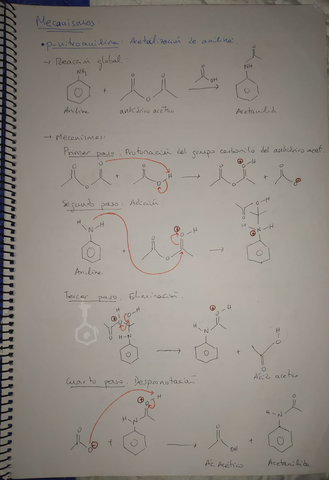 Mecanismos:
• p-nitroanilina: Acetilación de anilina
→ Reacción global:
NH₂
O
NH
+
OH
Anilina
anhídrido acético
Acetanilida
→ Mecanismos:
Primer paso: Protonación del grupo carbonilo del anhídrido acet.
Segundo paso: Adición
Anilina
Tercer paso: Eliminación
Ácido acético
Cuarto paso: Desprotonación
Ac. Acético
Acetanilida